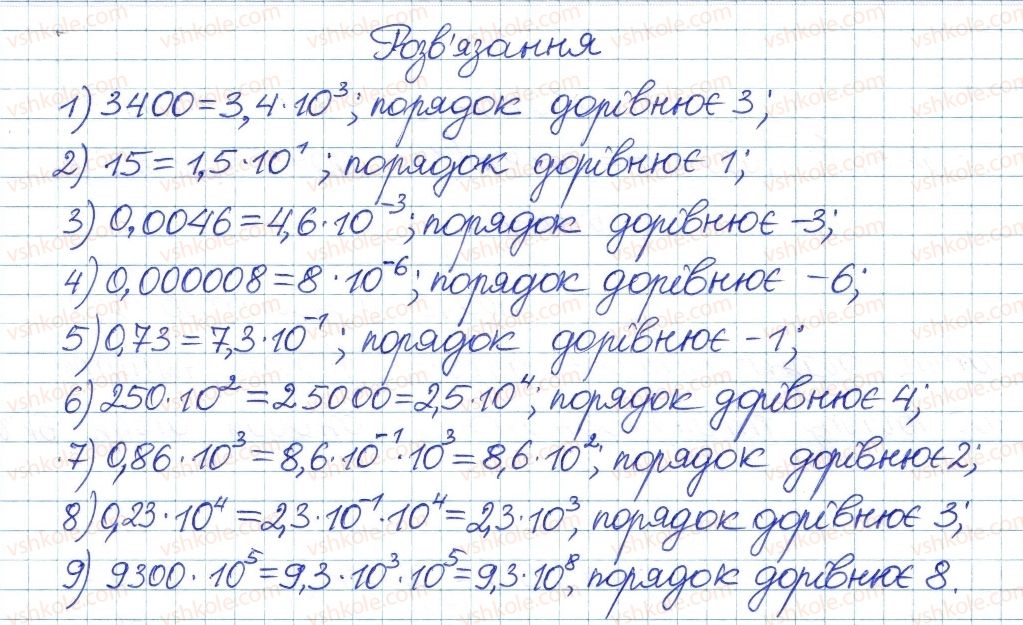 Розв'язання
1) 3400 = 3,4 · 10³; порядок дорівнює 3;
2) 15 = 1,5 · 10¹; порядок дорівнює 1;
3) 0,0046 = 4,6 · 10⁻³; порядок дорівнює -3;
4) 0,000008 = 8 · 10⁻⁶; порядок дорівнює -6;
5) 0,73 = 7,3 · 10⁻¹; порядок дорівнює -1;
6) 250 · 10² = 25000 = 2,5 · 10⁴; порядок дорівнює 4;
7) 0,86 · 10³ = 8,6 · 10⁻¹ · 10³ = 8,6 · 10²; порядок дорівнює 2;
8) 0,23 · 10⁴ = 2,3 · 10⁻¹ · 10⁴ = 2,3 · 10³, порядок дорівнює 3;
9) 9300 · 10⁵ = 9,3 · 10³ · 10⁵ = 9,3 · 10⁸, порядок дорівнює 8.
vshkole.com